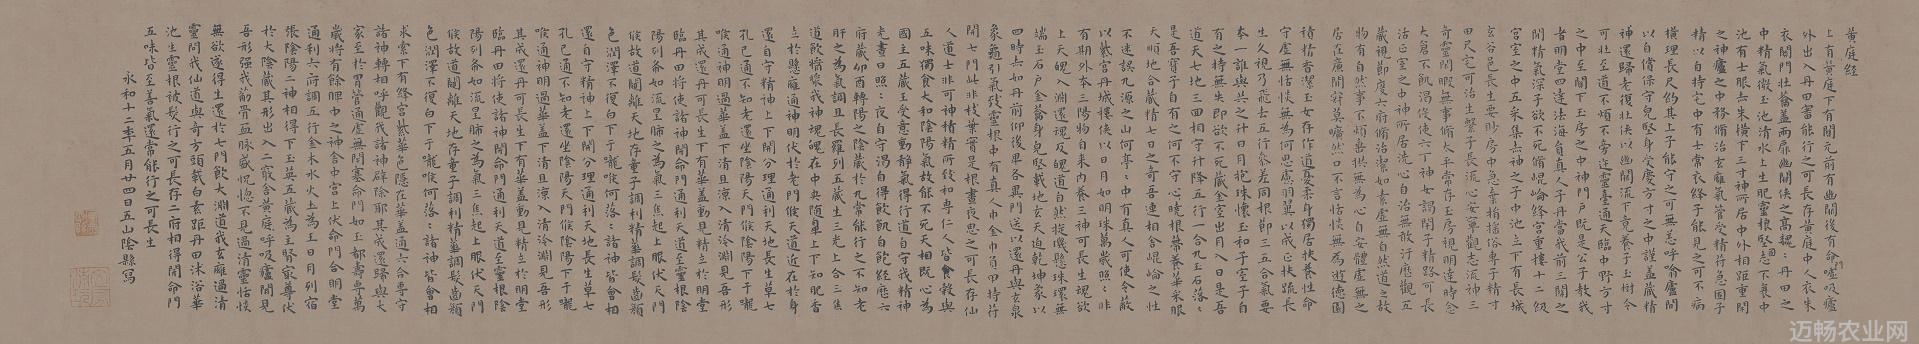 黃庭經
上有黃庭下有關元前有幽闕後有命嘘吸廬
外出入丹田審能行之可長存黃庭中人衣朱
衣關門壯蘥蓋兩扉幽闕俠之高魏〻丹田之
中精氣微玉池清水上生肥靈根堅志不衰中
池有士服赤朱橫下三寸神所居中外相距重閉
之神廬之中務脩治玄廱氣管受精符急固子
精以自持宅中有士常衣絳子能見之可不病
橫理長尺約其上子能守之可無恙呼噏廬間
以自償保守完堅身受慶方寸之中謹蓋藏精
神還歸老復壯俠以幽闕流下竟養子玉樹令
可壯至道不煩不旁迕靈臺通天臨中野方寸
之中至關下玉房之中神門戶既是公子教我
者明堂四達法海員真人子丹當我前三關之
間精氣深子欲不死脩崐崘絳宮重樓十二級
宮室之中五采集赤神之子中池立下有長城
玄谷邑長生要眇房中急棄捐搖俗專子精寸
田尺宅可治生繫子長流心安寧觀志流神三
奇靈閑暇無事脩太平常存玉房視明達時念
大倉不飢渴役使六丁神女謁閉子精路可長
活正室之中神所居洗心自治無敢汙歷觀五
藏視節度六府脩治潔如素虛無自然道之故
物有自然事不煩垂拱無為心自安體虛無之
居在廉間寂莫曠然口不言恬惔無為遊德園
積精香潔玉女存作道憂柔身獨居扶養性命
守虛無恬惔無為何思慮羽翼以成正扶疏長
生久視乃飛去五行參差同根節三五合氣要
本一誰與共之升日月抱珠懷玉和子室子自
有之持無失即欲不死藏金室出月入日是吾
道天七地三回相守升降五行一合九玉石落〻
是吾寶子自有之何不守心曉根蔕養華采服
天順地合藏精七日之奇吾連相合崐崘之性
不迷誤九源之山何亭〻中有真人可使令蔽
以紫宮丹城樓俠以日月如明珠萬歲照〻非
有期外本三陽物自來內養三神可長生魂欲
上天魄入淵還魂反魄道自然旋璣懸珠環無
端玉石戶金籥身兌堅載地玄天迫乾坤象以
四時赤如丹前仰後卑各異門送以還丹與玄泉
象龜引氣致靈根中有真人巾金巾負甲持符
開七門此非枝葉實是根晝夜思之可長存仙
人道士非可神積精所致和專仁人皆食穀與
五味獨食大和陰陽氣故能不死天相既心為
國主五藏王受意動靜氣得行道自守我精神
光晝日照〻夜自守渴自得飲飢自飽經歷六
府藏卯酉轉陽之陰藏於九常能行之不知老
肝之為氣調且長羅列五藏生三光上合三焦
道飲醬漿我神魂魄在中央隨鼻上下知肥香
立於懸廱通神明伏於老門候天道近在於身
還自守精神上下關分理通利天地長生草七
孔已通不知老還坐陰陽天門候陰陽下于嚨
喉通神明過華蓋下清且涼入清泠淵見吾形
其成還丹可長生下有華蓋動見精立於明堂
臨丹田將使諸神開命門通利天道至靈根陰
陽列布如流星肺之為氣三焦起上服伏天門
候故道闚離天地存童子調利精華調髮齒顏
色潤澤不復白下于嚨喉何落〻諸神皆會相
還自守精神上下關分理通利天地長生草七
孔已通不知老還坐陰陽天門候陰陽下于嚨
喉通神明過華蓋下清且涼入清泠淵見吾形
其成還丹可長生下有華蓋動見精立於明堂
臨丹田將使諸神開命門通利天道至靈根陰
陽列布如流星肺之為氣三焦起上服伏天門
候故道闚離天地存童子調利精華調髮齒顏
色潤澤不復白下于嚨喉何落〻諸神皆會相
求索下有絳宮紫華色隱在華蓋通六合專守
諸神轉相呼觀我諸神辟除耶其成還歸與大
家至於胃管通虛無閉塞命門如玉都壽專萬
歲將有餘脾中之神舍中宮上伏命門合明堂
通利六府調五行金木水火土為王日月列宿
張陰陽二神相得下玉英五藏為主腎最尊伏
於大陰藏其形出入二竅舍黃庭呼吸廬間見
吾形强我筋骨血脉盛恍惚不見過清靈恬惔
無欲遂得生還於七門飲大淵道我玄廱過清
靈問我仙道與奇方頭載白素距丹田沐浴華
池生靈根被髮行之可長存二府相得開命門
五味皆至善氣還常能行之可長生
永和十二年五月廿四日五山陰縣寫
迈畅农业网